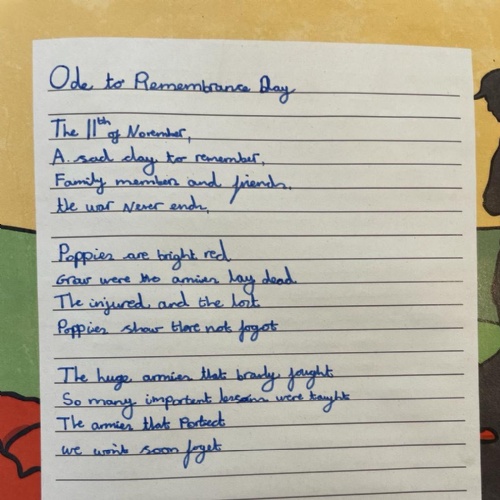 Ode to Remembrance Day
The 11th of November,
A sad day to remember,
Family members and friends,
the war Never ends,
Poppies are bright red
Grow were the armies lay dead
The injured and the lost
Poppies show there not forgot
The huge armies that bravely fought
So many important lessons were taught
The armies that Portect
we won't soon forget